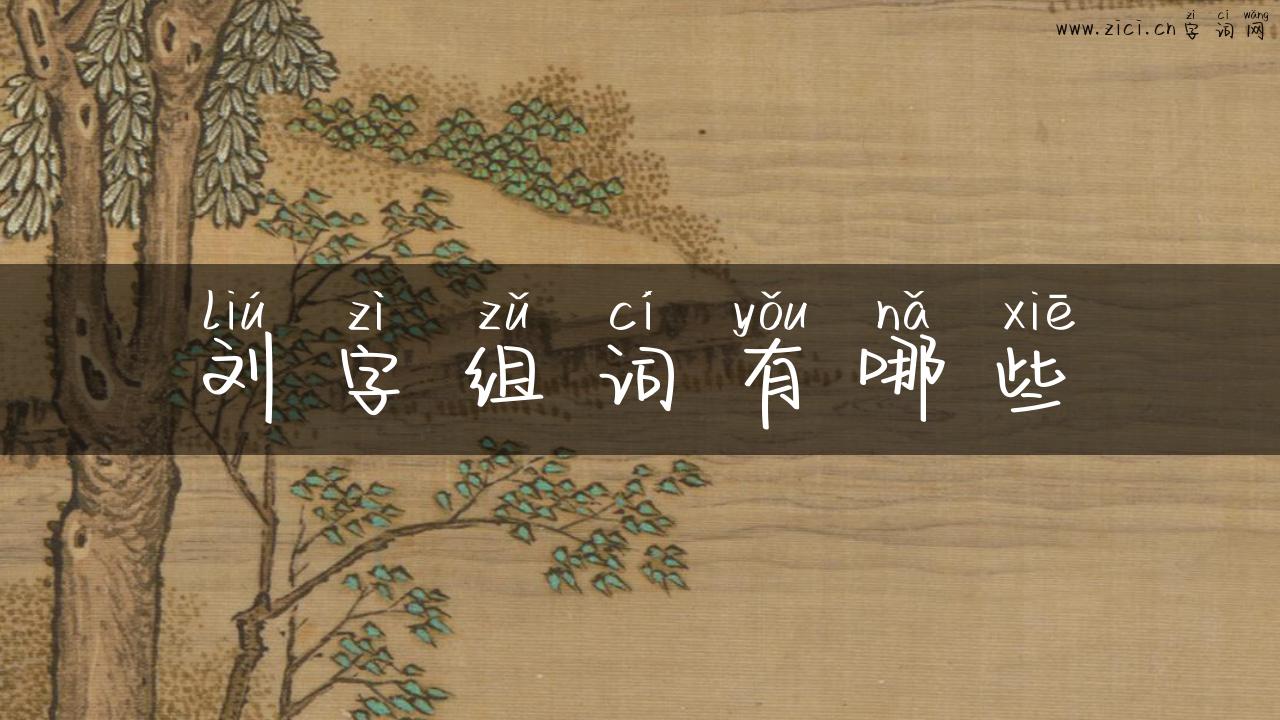 zì cí wǎng
www.zici.cn 字词网
liú zì zǔ cí yǒu nǎ xiē
刘字组词有哪些